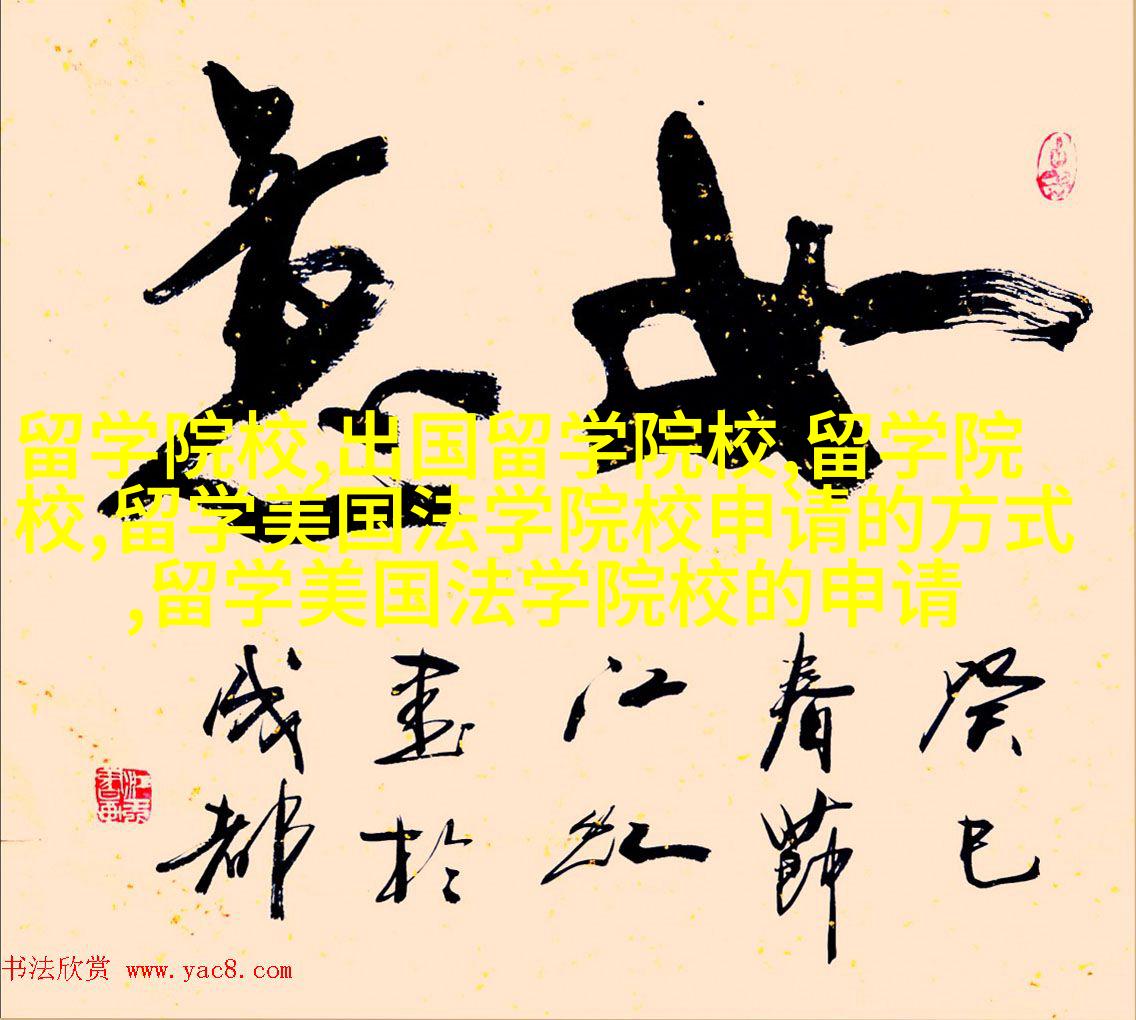 如意
留学院校,出国留学院校,留学院
校,留学美国法学院校申请的方式
,留学美国法学院校的申请
癸巳
春節
江红
書於
成都
书法欣赏 www.yac8.com